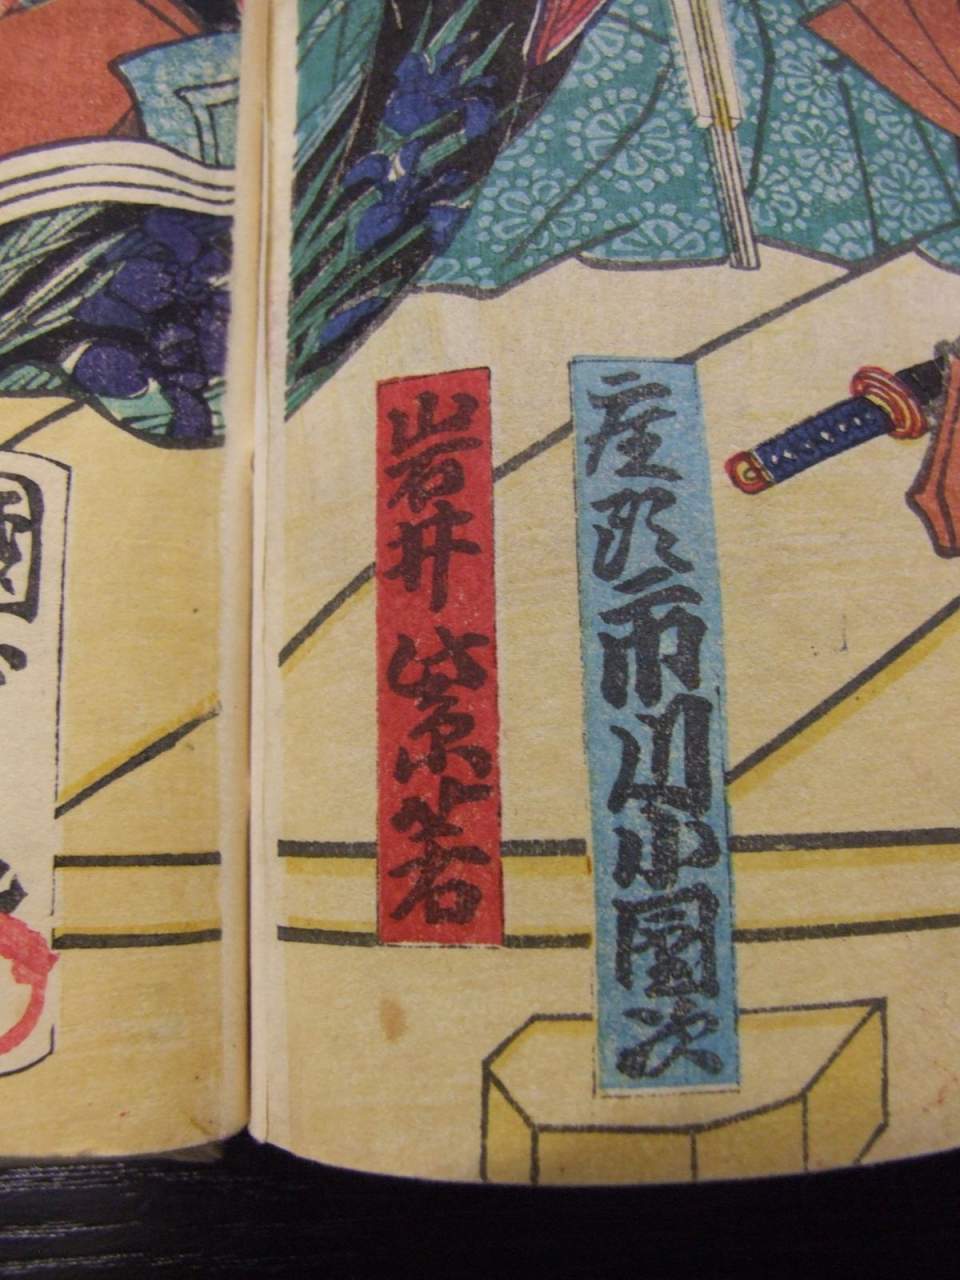 座頭市川小團次
岩井紫若
國